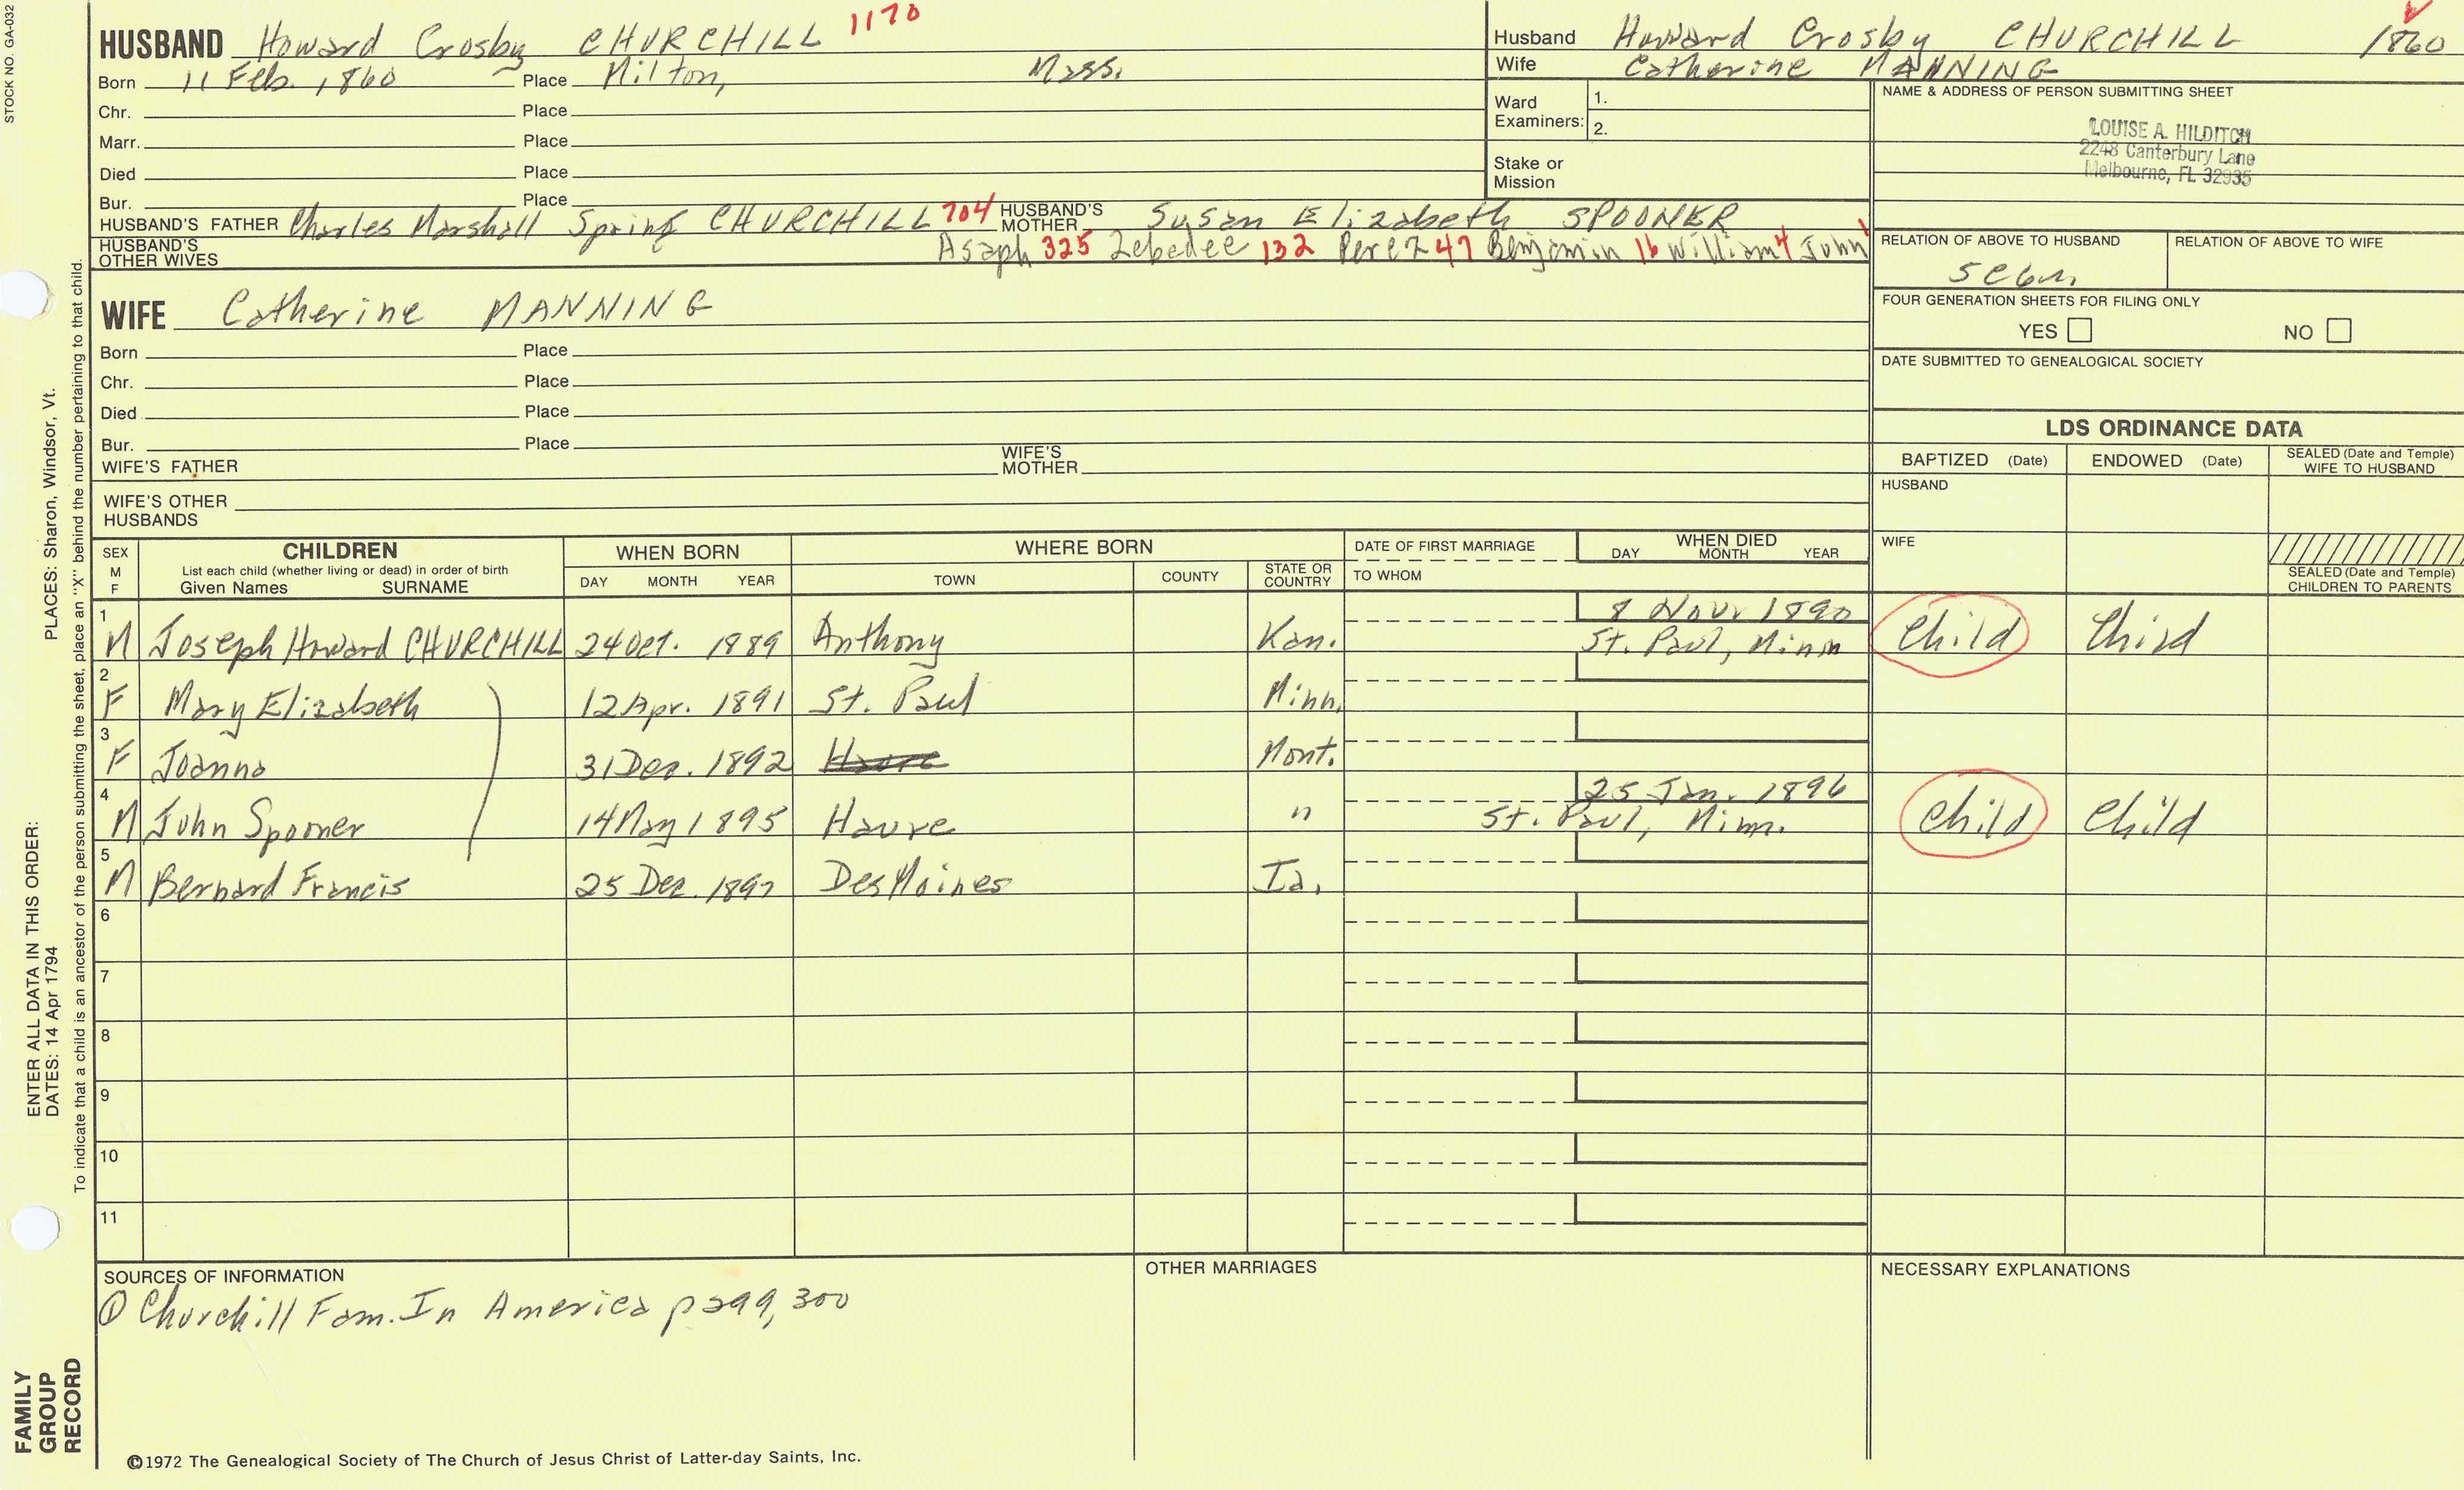 STOCK NO. GA-032
HUSBAND Howard Crosby CHURCHILL 1170
Born 11 Feb. 1860 Place Milton, Mass.
Chr. Place
Marr. Place
Died Place
Bur. Place
HUSBAND'S FATHER Charles Marshall Spring CHURCHILL 704 HUSBAND'S MOTHER Susan Elizabeth SPOONER
HUSBAND'S OTHER WIVES Asaph 325 Zebedee 132 Perez 47 Benjamin 16 William 4 John 1
WIFE Catherine MANNING
Born Place
Chr. Place
Died Place
Bur. Place
WIFE'S FATHER WIFE'S MOTHER
WIFE'S OTHER HUSBANDS
Husband Howard Crosby CHURCHILL 1860
Wife Catherine MANNING
Ward Examiners: 1.
2.
Stake or Mission
NAME & ADDRESS OF PERSON SUBMITTING SHEET
LOUISE A. HILDITCH
2248 Canterbury Lane
Melbourne, FL 32935
RELATION OF ABOVE TO HUSBAND RELATION OF ABOVE TO WIFE
FOUR GENERATION SHEETS FOR FILING ONLY
YES NO
DATE SUBMITTED TO GENEALOGICAL SOCIETY
LDS ORDINANCE DATA
BAPTIZED (Date) ENDOWED (Date) SEALED (Date and Temple) WIFE TO HUSBAND
HUSBAND
WIFE
SEALED (Date and Temple) CHILDREN TO PARENTS
SEX M F CHILDREN WHEN BORN WHERE BORN DATE OF FIRST MARRIAGE WHEN DIED
List each child (whether living or dead) in order of birth
Given Names SURNAME DAY MONTH YEAR TOWN COUNTY STATE OR COUNTRY TO WHOM DAY MONTH YEAR
1 M Joseph Howard CHURCHILL 24 Oct. 1889 Anthony Kan. 8 Nov. 1890 St. Paul, Minn Child Child
2 F Mary Elizabeth 12 Apr. 1891 St. Paul Minn.
3 F Joanna 31 Dec. 1892 Mont.
4 M John Spooner 14 May 1895 Havre " 25 Jan. 1896 St. Paul, Minn. Child Child
5 M Bernard Francis 25 Dec. 1897 Des Moines Ia.
6
7
8
9
10
11
SOURCES OF INFORMATION
① Churchill Fam. In America p 299, 300
OTHER MARRIAGES
NECESSARY EXPLANATIONS
©1972 The Genealogical Society of The Church of Jesus Christ of Latter-day Saints, Inc.
FAMILY GROUP RECORD
ENTER ALL DATA IN THIS ORDER:
DATES: 14 Apr 1794 PLACES: Sharon, Windsor, Vt.
To indicate that a child is an ancestor of the person submitting the sheet, place an "X" behind the number pertaining to that child.